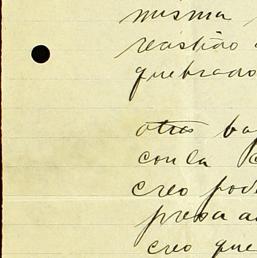 misma
quebrado
otros ba
con la
creo pod
presa a
creo que